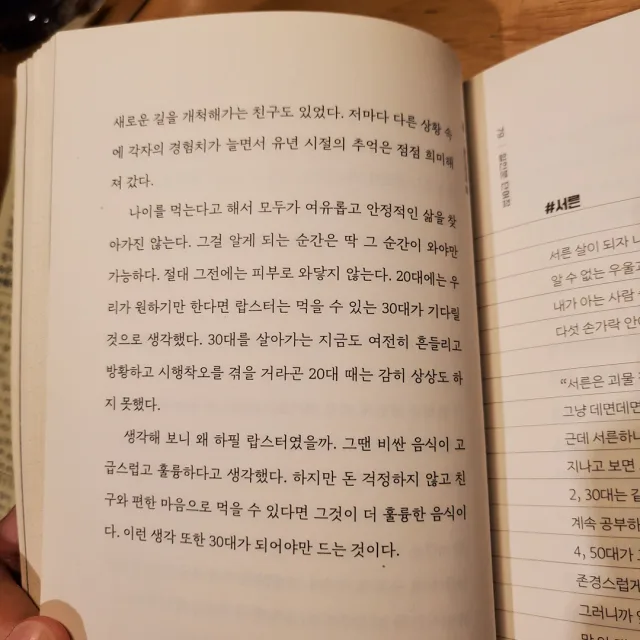 새로운 길을 개척해가는 친구도 있었다. 저마다 다른 상황 속
에 각자의 경험치가 늘면서 유년 시절의 추억은 점점 희미해
져 갔다.
나이를 먹는다고 해서 모두가 여유롭고 안정적인 삶을 찾
아가진 않는다. 그걸 알게 되는 순간은 딱 그 순간이 와야만
가능하다. 절대 그전에는 피부로 와닿지 않는다. 20대에는 우
리가 원하기만 한다면 랍스터는 먹을 수 있는 30대가 기다릴
것으로 생각했다. 30대를 살아가는 지금도 여전히 흔들리고
방황하고 시행착오를 겪을 거라곤 20대 때는 감히 상상도 하
지 못했다.
생각해 보니 왜 하필 랍스터였을까. 그땐 비싼 음식이 고
급스럽고 훌륭하다고 생각했다. 하지만 돈 걱정하지 않고 친
구와 편한 마음으로 먹을 수 있다면 그것이 더 훌륭한 음식이
다. 이런 생각 또한 30대가 되어야만 드는 것이다.
79
#서른
서른 살이 되자
알 수 없는 우울
내가 아는 사람
다섯 손가락
“서른은 괴물
그냥 데면데면
근데 서른하
지나고 보면
2, 30대는
계속 공부하
4, 50대가
존경스럽게
그러니까